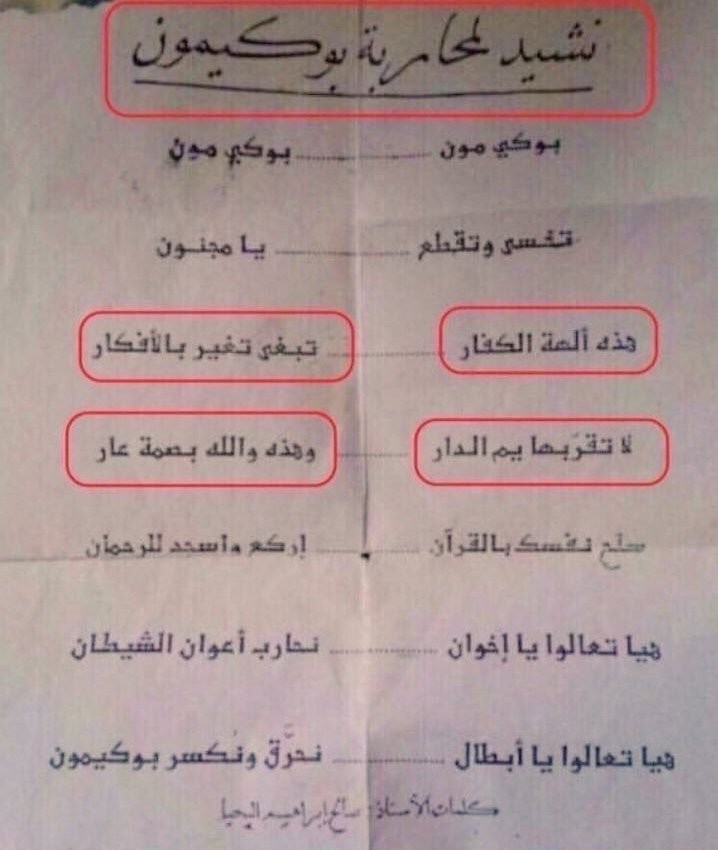 نشيد لمحاربة بوكيمون
بوكي مون ........ بوكي مون
تخسى وتقطع ........ يا مجنون
هذه ألهة الكفار ........ تبغي تغير بالأفكار
لا تقرّبها يم الدار ........ وهذه والله بصمة عار
صلح نفسك بالقرآن ........ إركع واسجد للرحمان
هيا تعالوا يا إخوان ........ نحارب أعوان الشيطان
هيا تعالوا يا أبطال ........ نحرّق ونكسر بوكيمون
كلمات الأستاذ: صالح إبراهيم